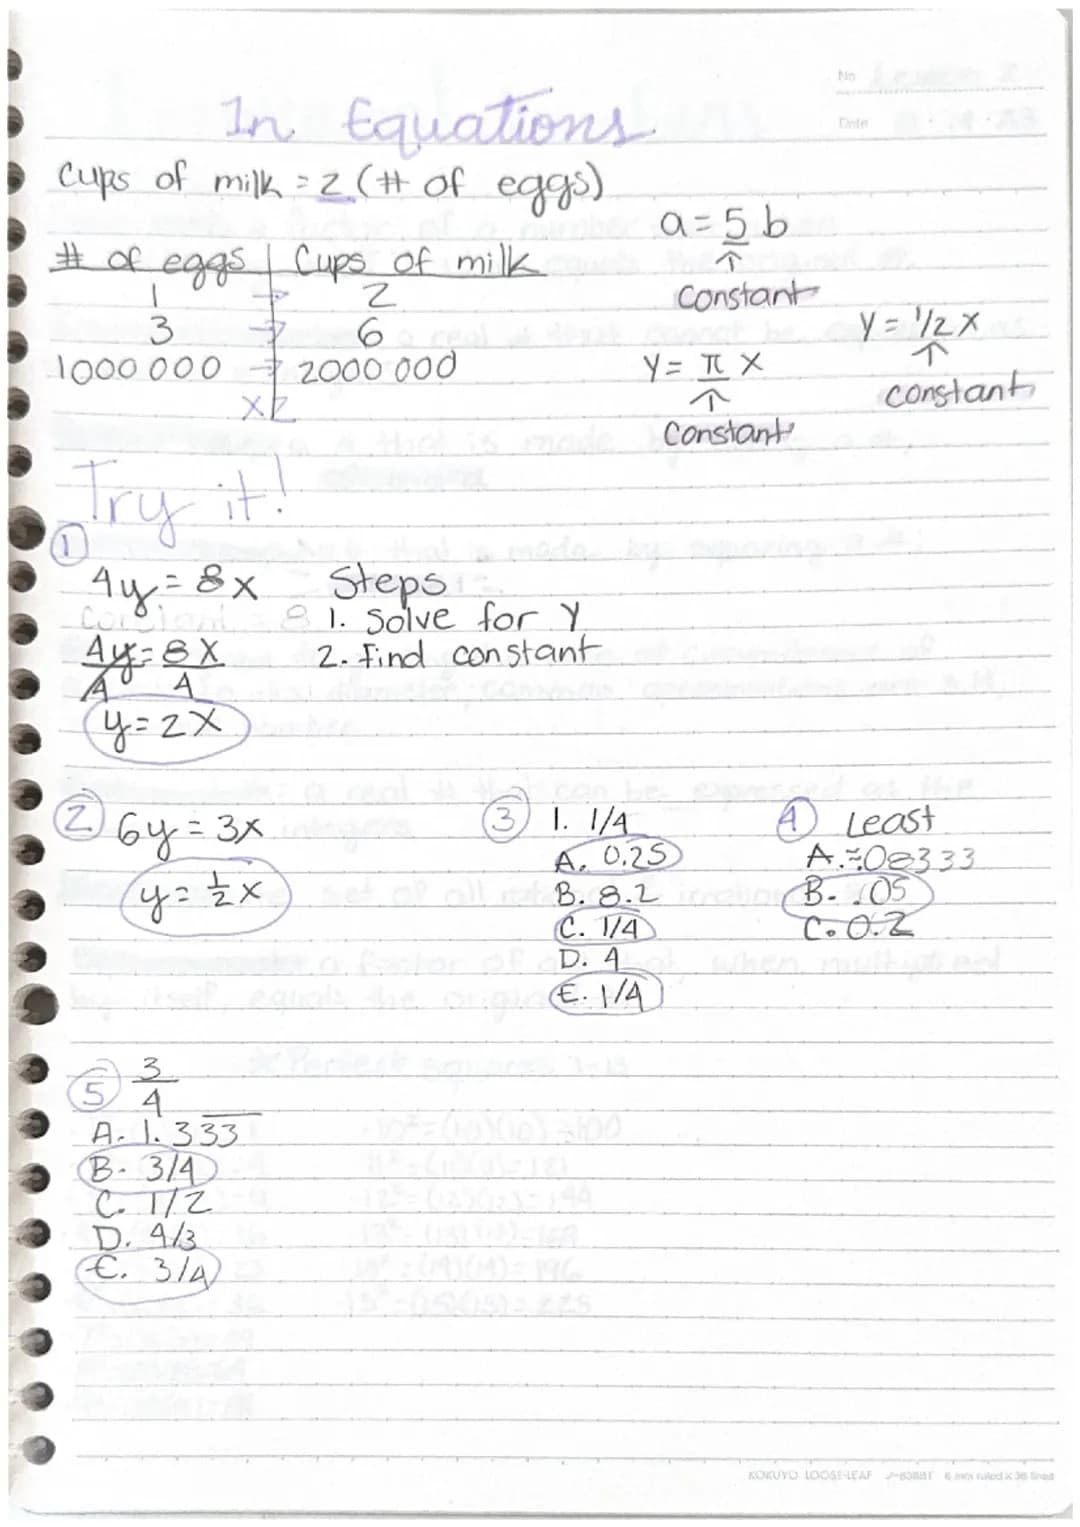 No
Date
In Equations
Cups of milk = 2 (# of eggs)
# of eggs | Cups of milk
1 → 2
3 → 6
1000 000 → 2000 000
x2
a = 5 b
↑
constant
y = 1/2 x
↑
constant
y = π x
↑
constant
Try it!
① 
4y = 8x
4y = 8x
4 4
y = 2x
Steps
1. Solve for y
2. Find constant
② 6y = 3x
y = 1/2 x
③ 1. 1/4
A. 0.25
B. 8.2
C. 1/4
D. 4
E. 1/4
④ Least
A. ≈.08333
B. .05
C. 0.2
⑤ 3/4
A. 1.333
B. 3/4
C. 1/2
D. 4/3
E. 3/4
KOKUYO LOOSE-LEAF
6 mm ruled x 36 lines